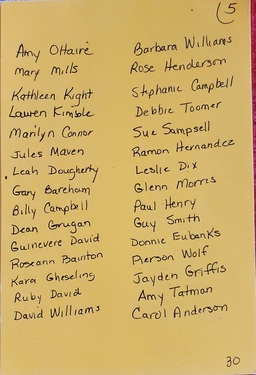 5
Amy OHaire
Mary Mills
Kathleen Kight
Lauren Kimble
Marilyn Connor
Jules Maven
Leah Dougherty
Gary Bareham
Billy Campbell
Dean Grugan
Guinevere David
Roseann Bainton
Kara Gheseling
Ruby David
David Williams
Barbara Williams
Rose Henderson
Stphanie Campbell
Debbie Toomer
Sue Sampsell
Ramon Hernandez
Leslie Dix
Glenn Morris
Paul Henry
Guy Smith
Donnie Eubanks
Pierson Wolf
Jayden Griffis
Amy Tatman
Carol Anderson
30